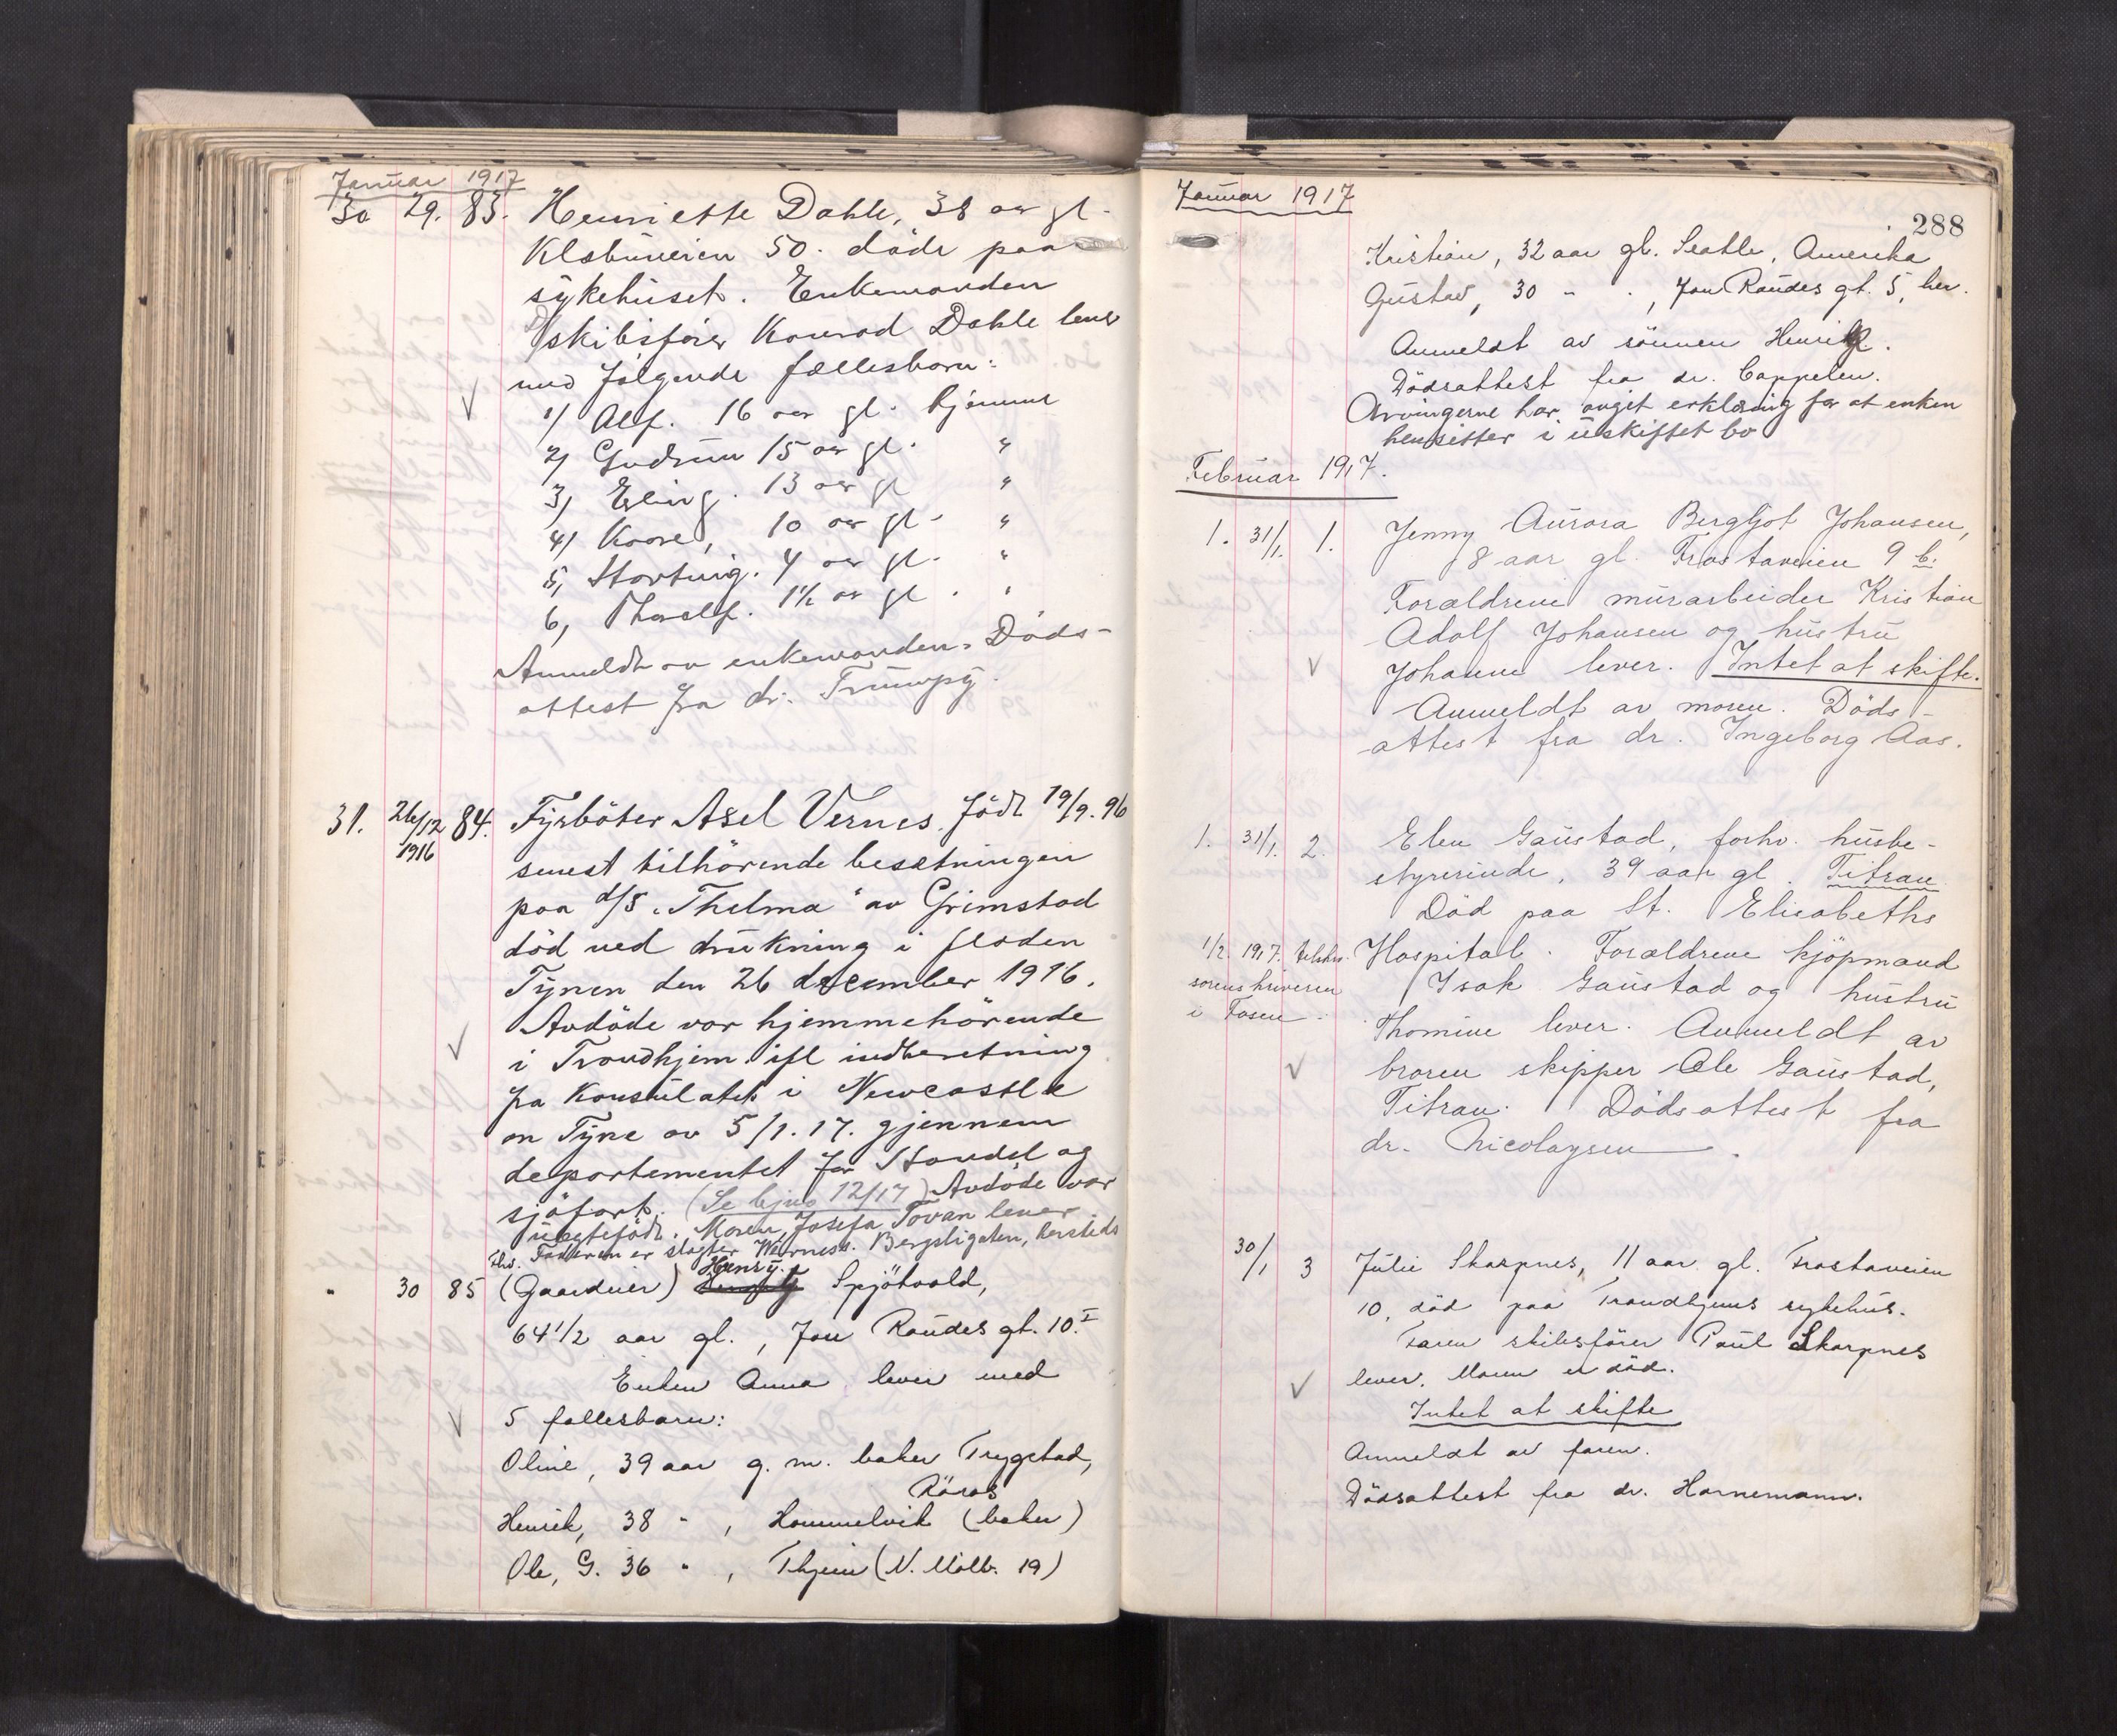 Januar 1917
30 29. 83. Henriette Dahle, 38 aar gl.
Klæbuveien 50. døde paa
sykehuset. Enkemanden
skibsfører Konrad Dahle lever
med følgende fællesbarn:
1/ Alf. 16 aar gl. hjemme
2/ Gudrun 15 aar gl. "
3) Erling. 13 aar gl "
4) Kaare, 10 aar gl. "
5, 4 aar gl. "
6, Thoralf. 1½ aar gl. "
Anmeldt av enkemanden. Døds-
attest fra dr. Trumpy.
31. 26/12 1916 84. Fyrbøter Axel Vernes. Født 19/9. 96
senest tilhørende besetningen
paa d/s "Thelma" av Grimstad
död ved drukning i floden
Tynen den 26 december 1916.
Avdöde var hjemmehörende
i Trondhjem ifl indberetning
fra Konsulatet i Newcastle
on Tyne av 5/1. 17. gjennem
departementet for Handel og
sjöfart. (Se bjur 12/17) Avdöde var
uegtefödt. Moren, Josefa Tovan lever
Thv. Faderen er slagter Wærness. Bersligaten, hersteds
" 30 85 (Gaardeier) Henry Spjötvold,
64 1/2 aar gl., Jon Raudes gt. 10 I
Enken Anna lever med
5 fællesbarn:
Oline, 39 aar g. m. baker Trygstad,
Röros
Henrik, 38 " , Hommelvik (baker)
Ole, G. 36 " , Thjem (N. Møllb. 19)
Januar 1917
288
Kristian, 32 aar gl. Seatle, Amerika
Gustav, 30 " . , Jon Raudes gt. 5, her.
Anmeldt av sönnen Henrik.
Dödsattest fra dr. Cappelen.
Arvingerne har avgit erklæring for at enken
hensitter i uskiftet bo
Februar 1917.
1. 31/1. 1. Jenny Aurora Bergljot Johansen,
8 aar gl. Frostaveien 9 b.
Forældrene murarbeider Kristian
Adolf Johansen og hustru
Johanne lever. Intet at skifte.
Anmeldt av moren. Döds-
attest fra dr. Ingeborg Aas.
1. 31/1. 2. Elen Gaustad, forhv. husbe-
styrerinde, 39 aar gl. Titran
Död paa St. Elisabeths
1/2 1917. tilskr. Hospital. Forældrene kjöpmand
sorenskriveren Isak Gaustad og hustru
i Fosen. Thomine lever. Anmeldt av
broren skipper Ole Gaustad,
Titran. Dödsattest fra
dr. Nicolaysen.
30/1 3 Julie Skarpnes, 11 aar gl. Frostaveien
10, död paa Trondhjems sykehus.
Faren skibsförer Paul Skarpnes
lever. Moren er död.
Intet at skifte
Anmeldt av faren.
Dödsattest fra dr. Hornemann.